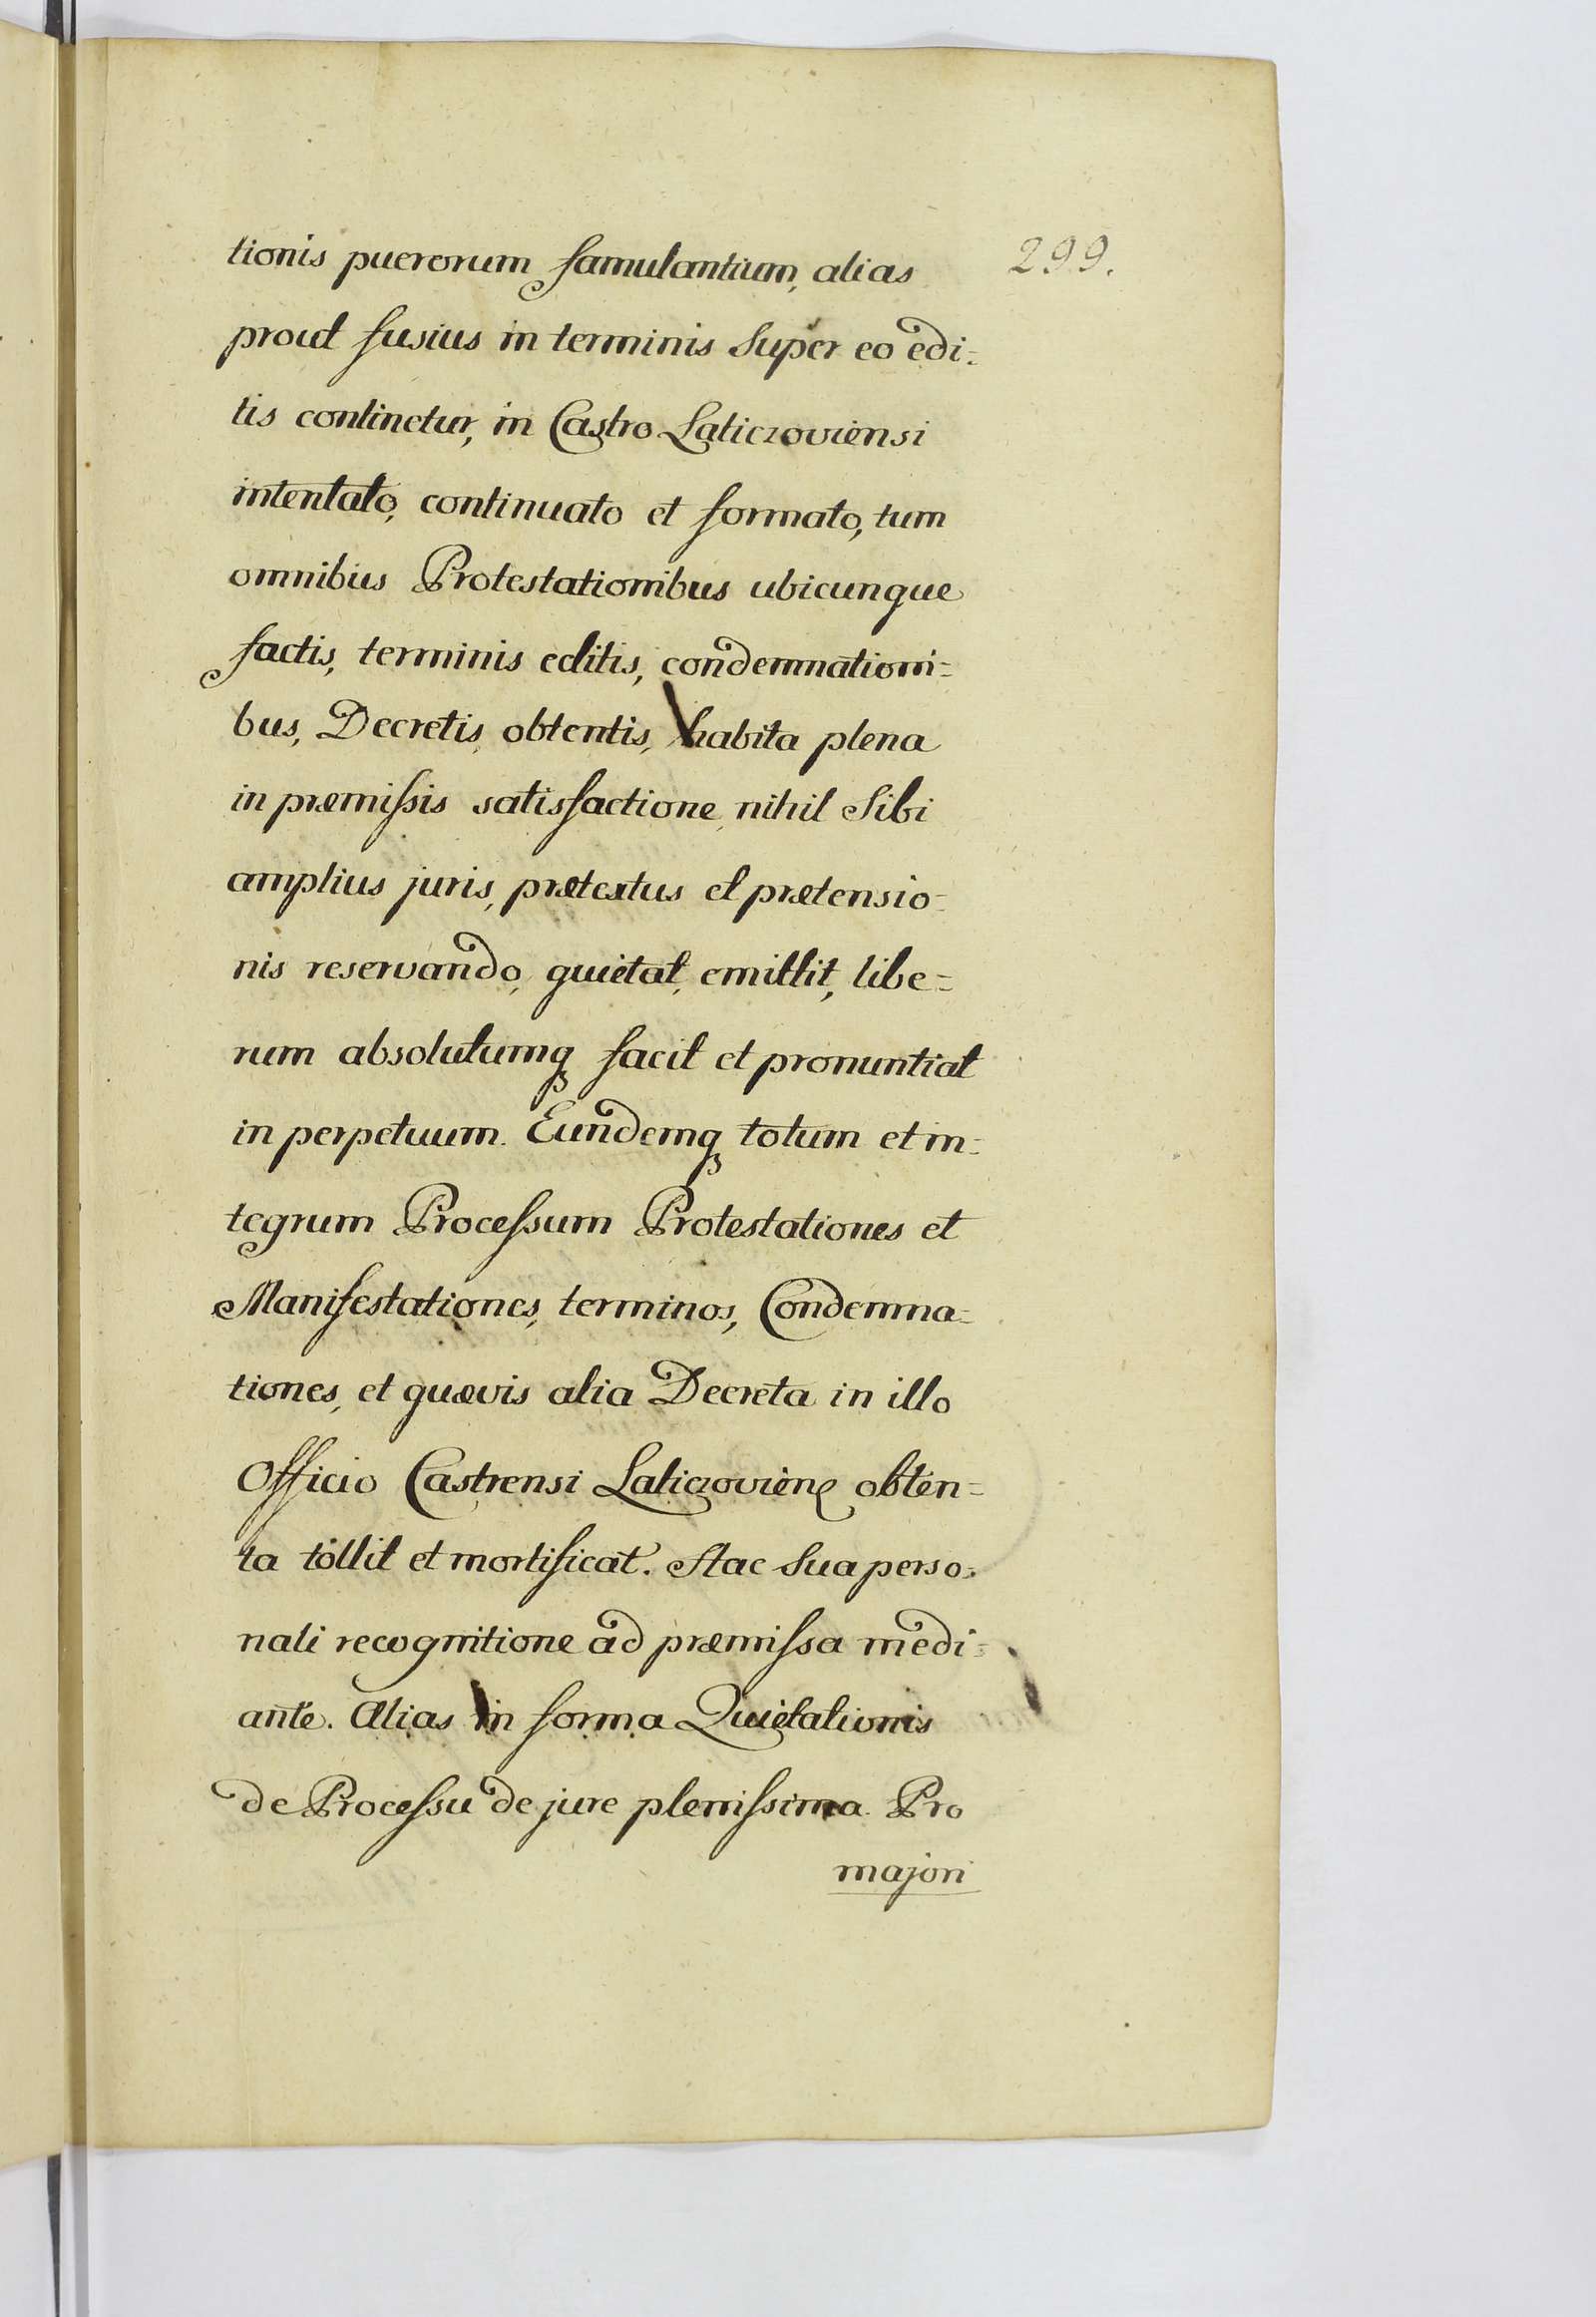 299.
tionis puerorum famulantium, alias
prout fusius in terminis super eo edi=
tis continetur, in Castro Laticzoviensi
intentato, continuato et formato, tum
omnibus Protestationibus ubicunque
factis, terminis editis, condemnationi=
bus, Decretis, obtentis, habita plena
in præmissis satisfactione, nihil Sibi
amplius juris, prætextus et prætensio=
nis reservando, quietat, emittit, libe=
rum absolutumq facit et pronuntiat
in perpetuum. Eundemq totum et in=
tegrum Processum Protestationes et
Manifestationes, terminos, Condemna=
tiones, et quævis alia Decreta in illo
Officio Castrensi Laticzovien obten=
ta tollit et mortificat. Hac sua perso=
nali recognitione ad præmissa medi=
ante. Alias in forma Quietationis
de Processu de jure plenissima. Pro
majori